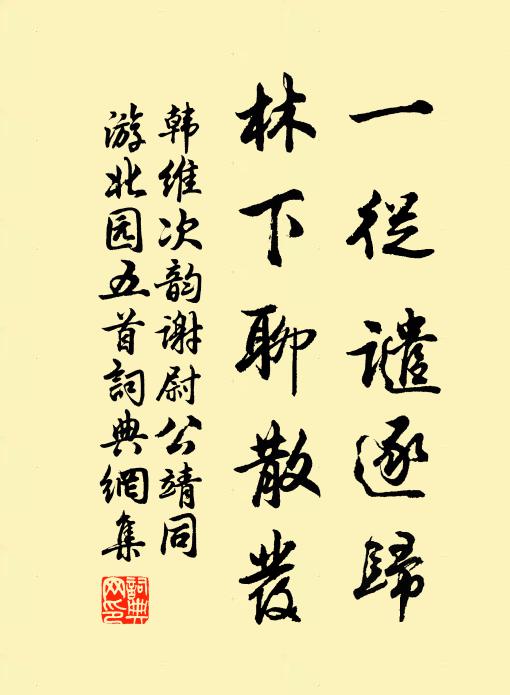 一從譴逐歸
林下聊散發
韩维次韵谢尉公靖同
游北园五首詞典網集
詞典
网印